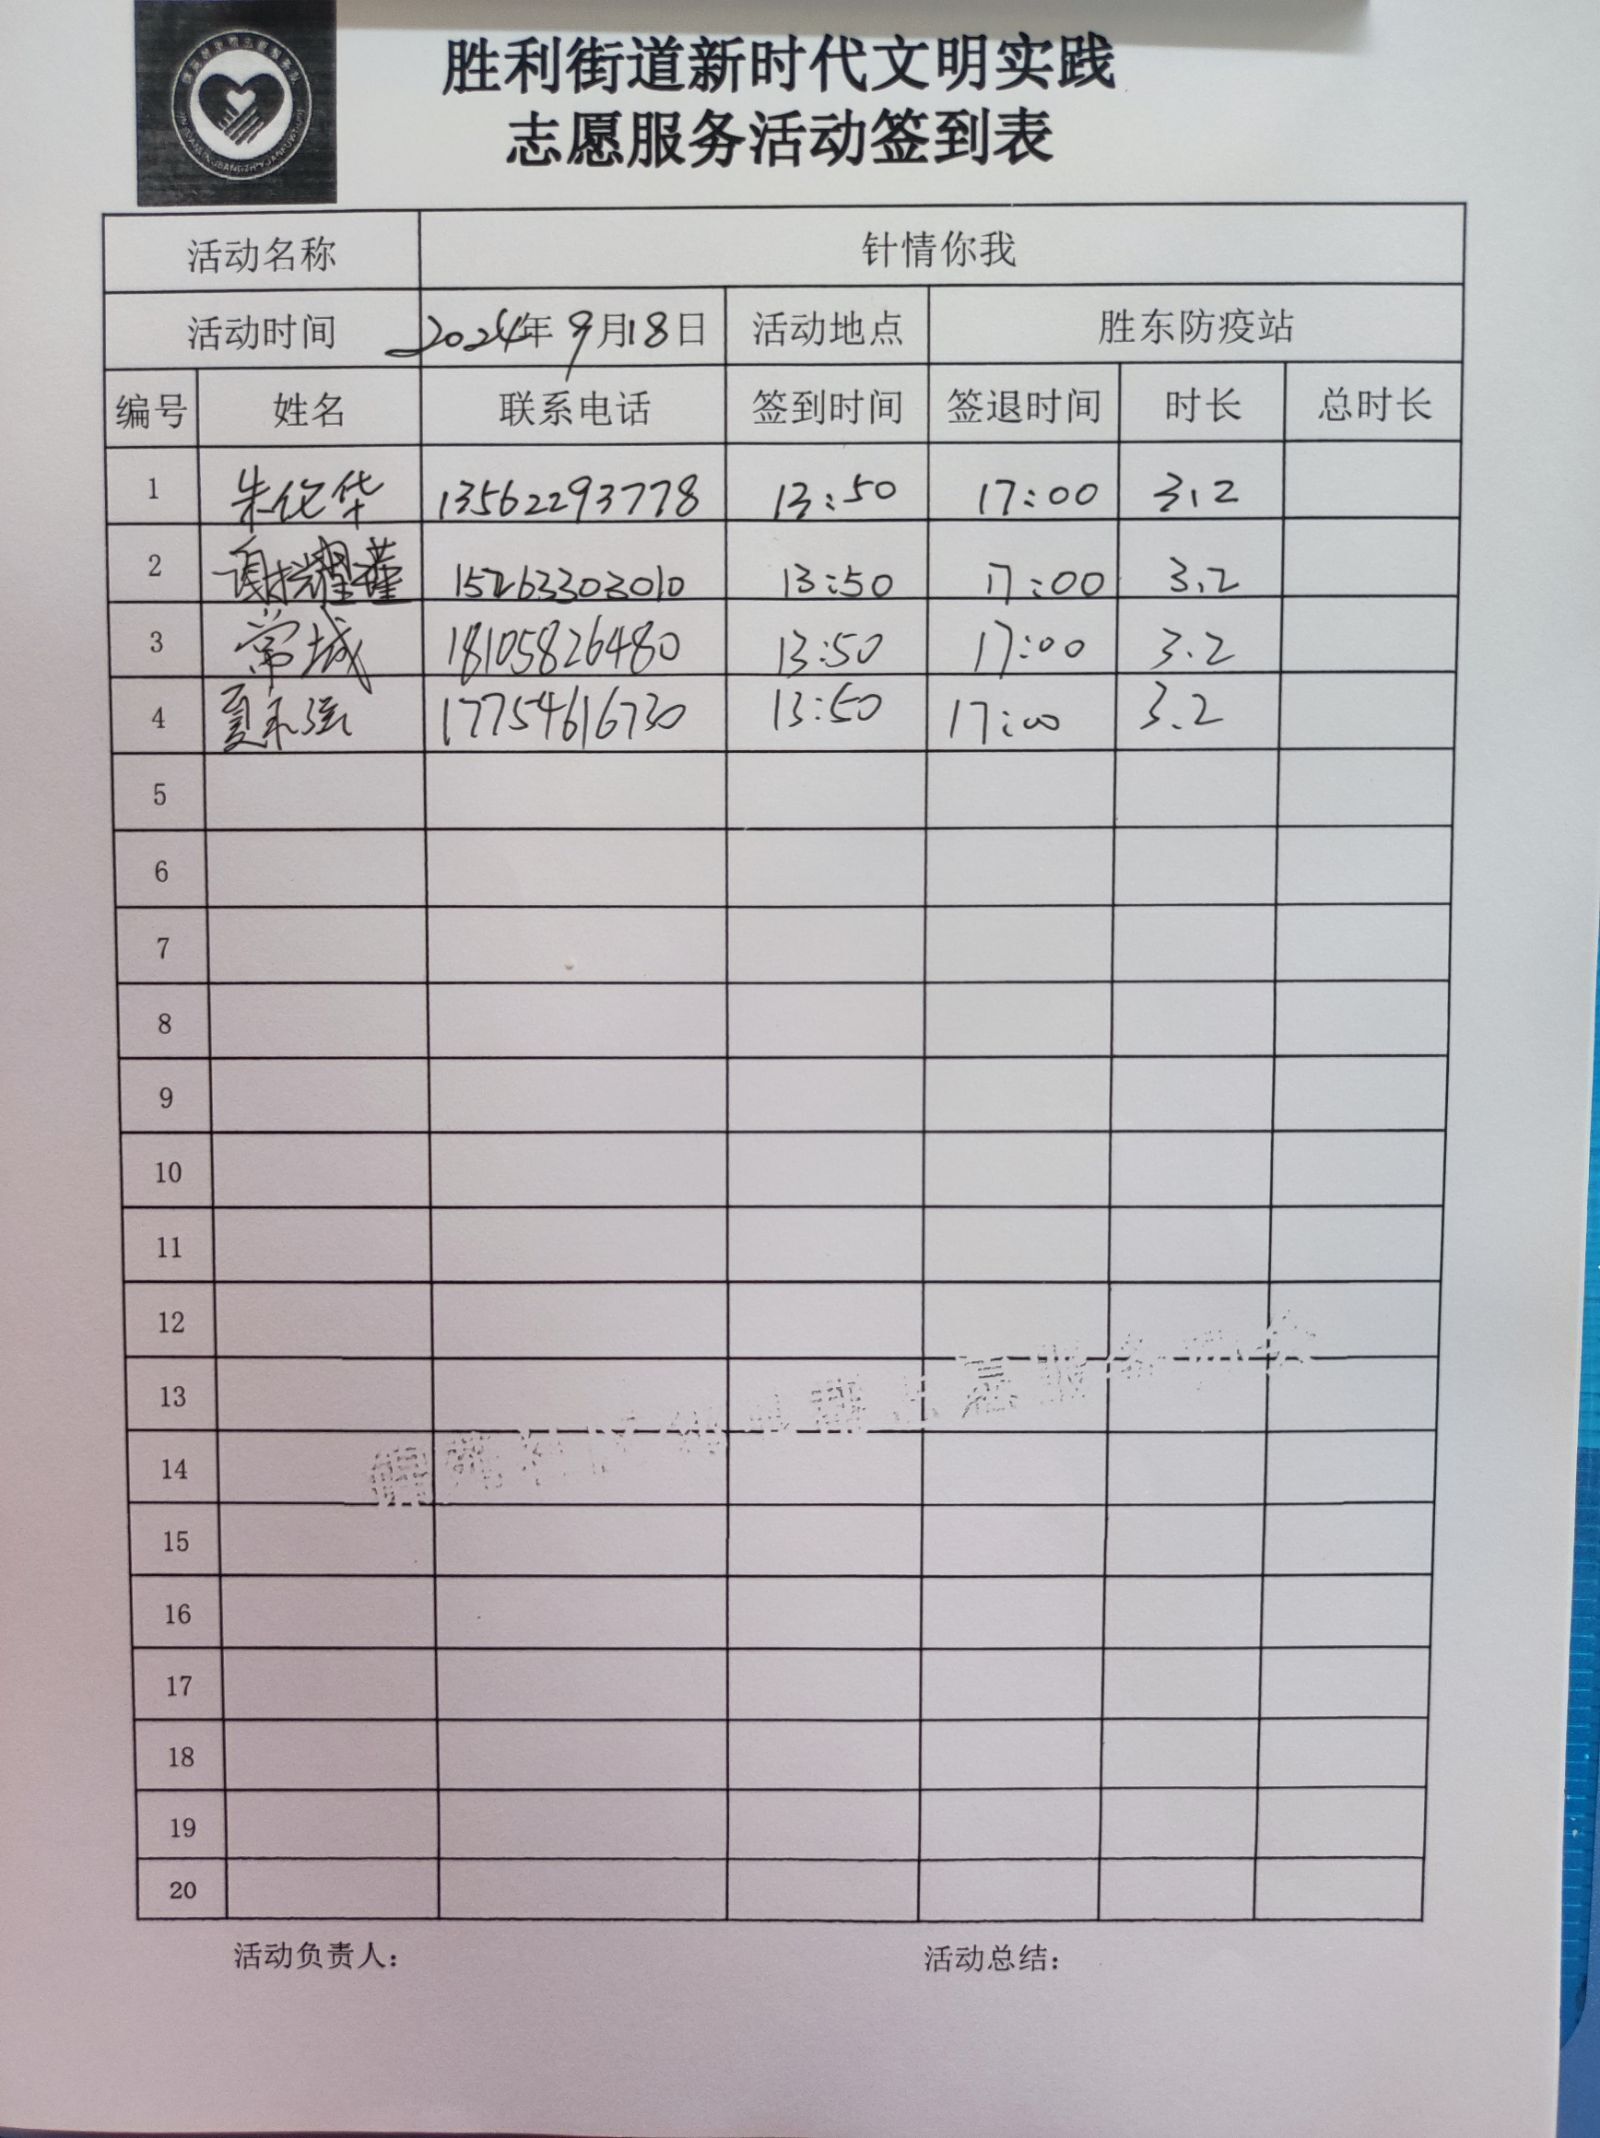 胜利街道新时代文明实践
志愿服务活动签到表
活动名称 针情你我
活动时间 2024年9月18日 活动地点 胜东防疫站
编号 姓名 联系电话 签到时间 签退时间 时长 总时长
1 朱伦华 13562293778 13:50 17:00 3.2
2 谢耀瑾 15263303010 13:50 17:00 3.2
3 常城 18105826480 13:50 17:00 3.2
4 夏永强 17754616730 13:50 17:00 3.2
5
6
7
8
9
10
11
12
13
14
15
16
17
18
19
20
活动负责人： 活动总结：